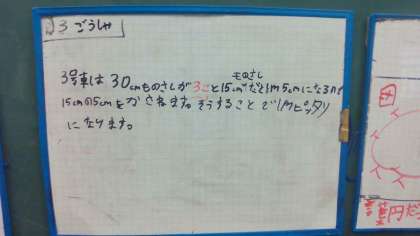 3ごうしゃ
3号車は30cmものさしが3こと15cmものさしだと1m5cmになるので
15cmの5cmをかさねます。そうすることで1mピッタリ
になります。